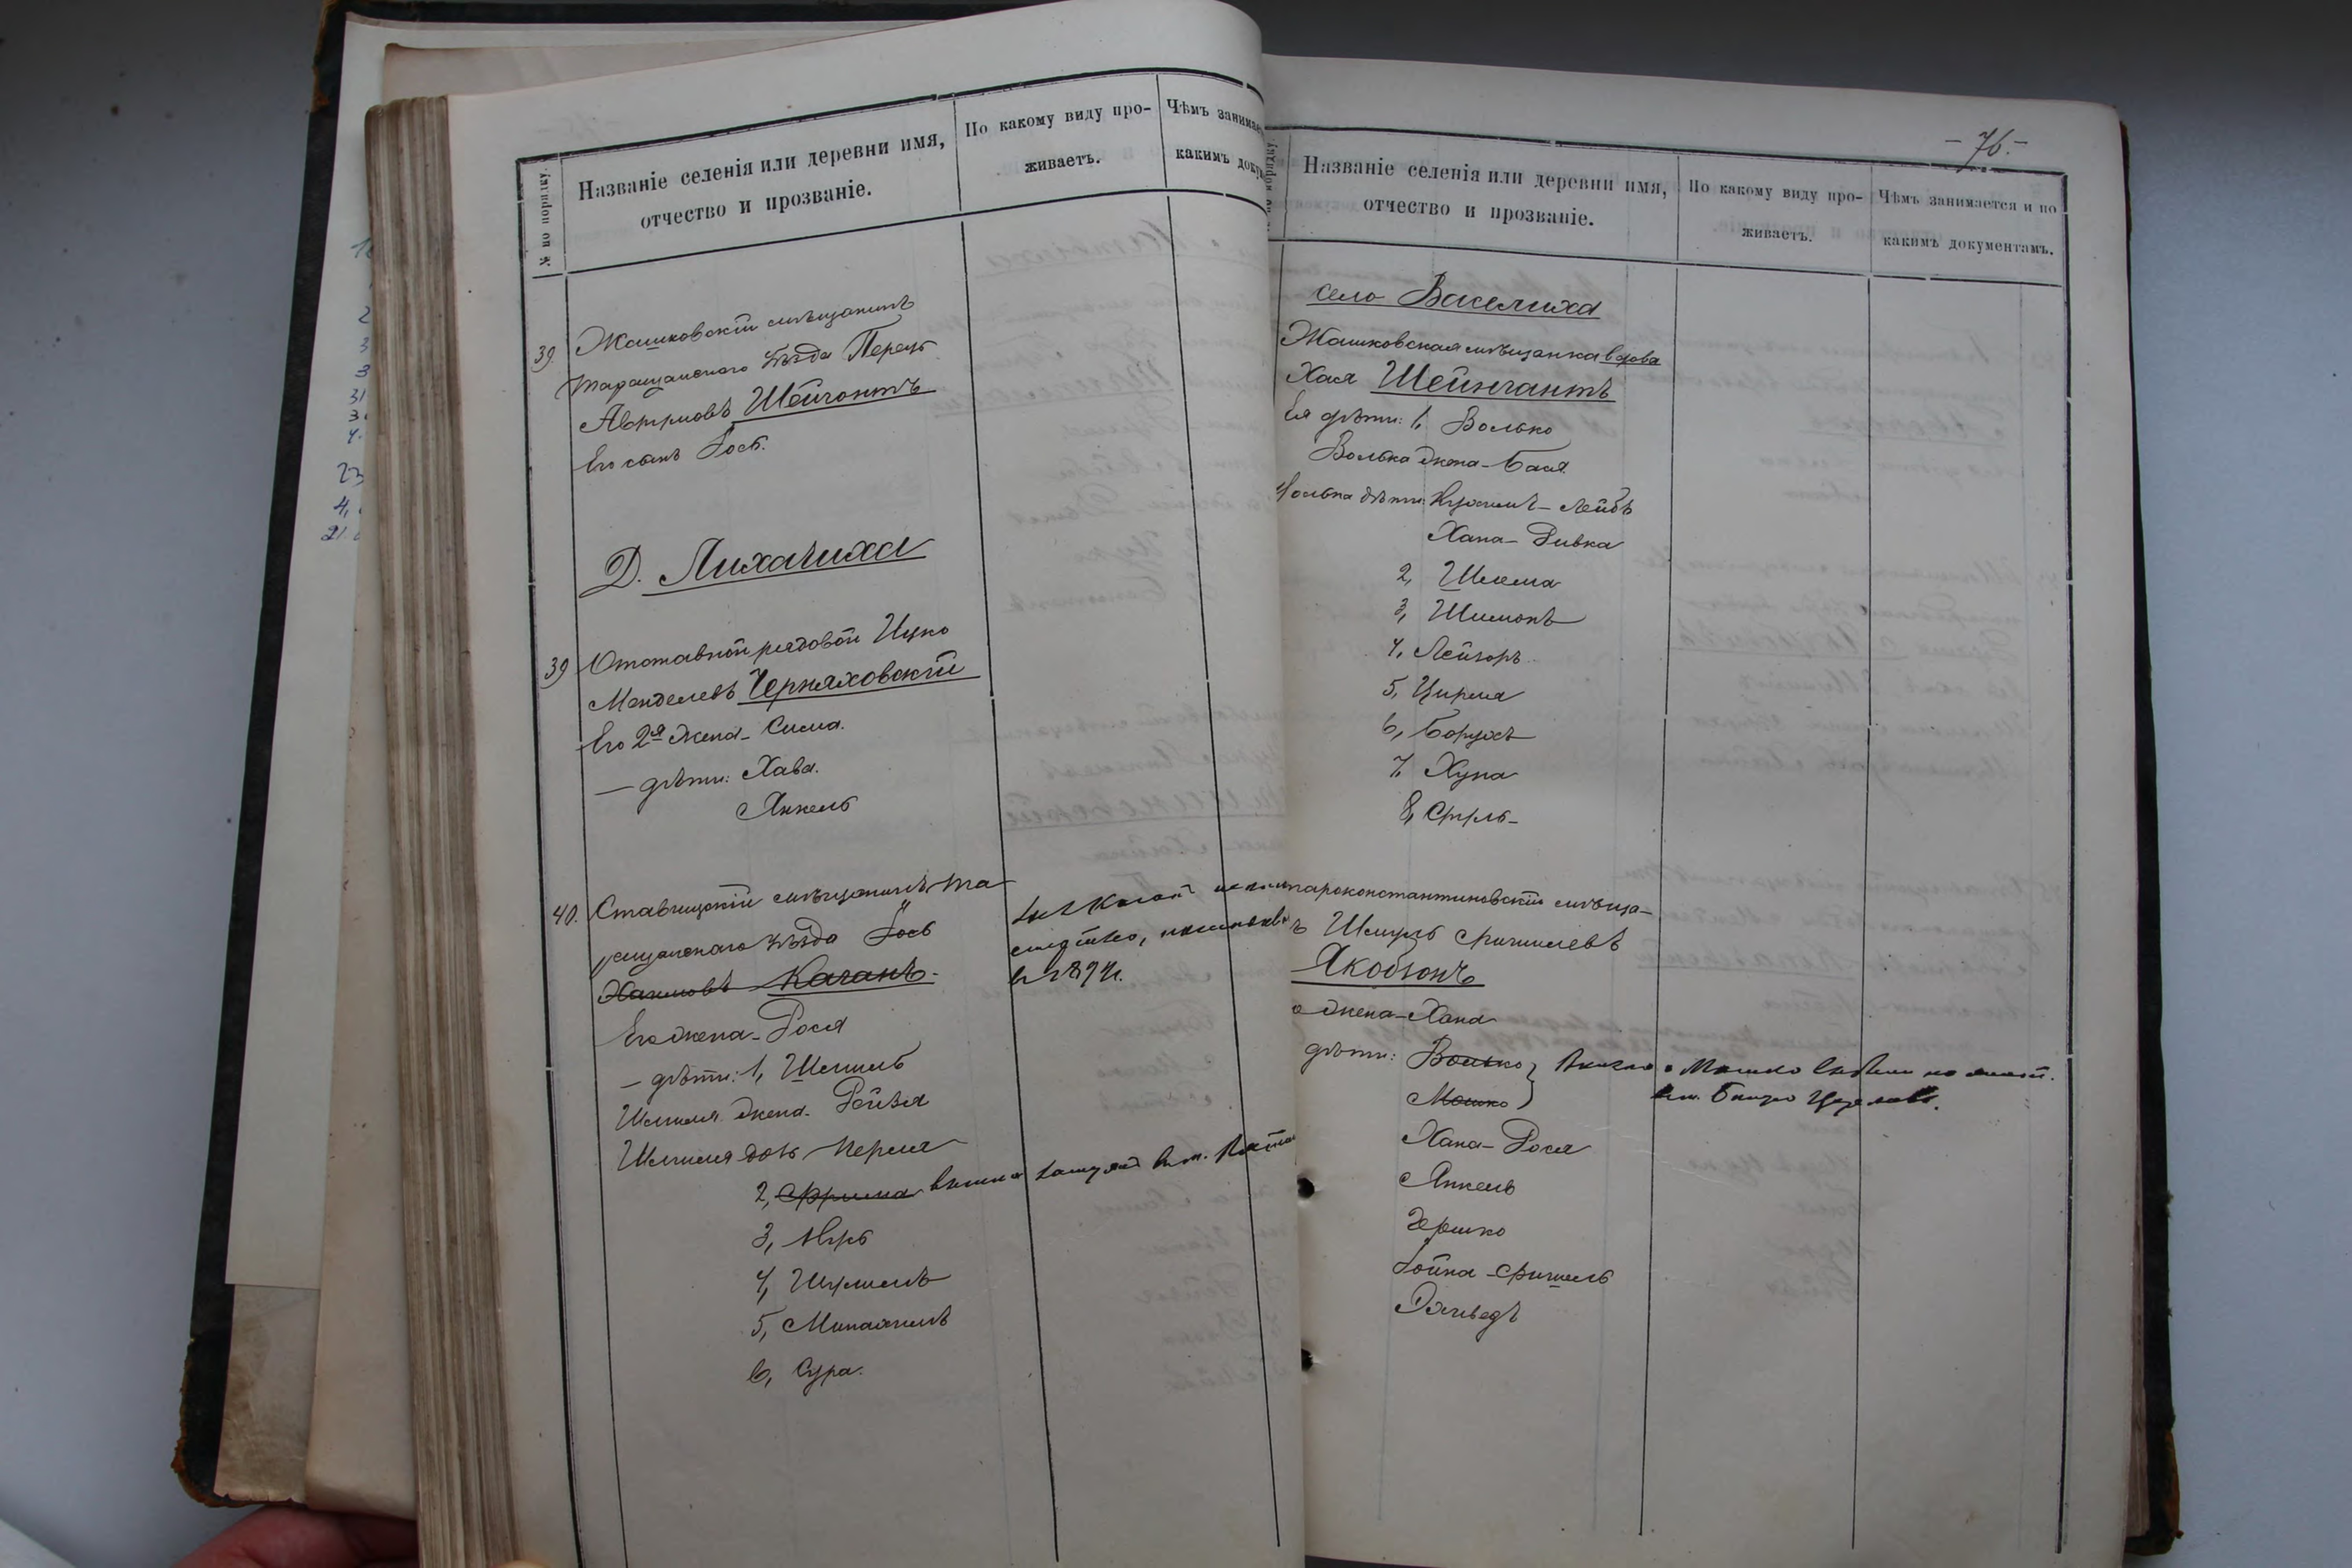 № по порядку.
Названіе селенія или деревни имя,
отчество и прозваніе.
По какому виду про-
живаетъ.
Чѣмъ занима
какимъ доку
39.
Жашковскій мѣщанинъ
Таращанского уѣзда Перецъ
Авррумовъ Шейнгонтъ
Его сынъ Іось.
Д. Лихачиха
39
Отставной рядовой Ицко
Менделевъ Черняховскій
Его 2я жена - Сима.
— дѣти: Хава.
Янкель
40.
Ставищскій мѣщанинъ Та-
ращанскаго уѣзда Іось
Хаимовъ Каганъ.
въ 1894 г.
Его жена - Рося
— дѣти: 1, Шмиль
Шмиля жена - Рейзя
Шмиля дочь Перля
2, Фрима вышла замужъ
3, Авръ
4, Шулимъ
5, Минахимъ
6, Сура.
- 76. -
по порядку
Названіе селенія или деревни имя,
отчество и прозваніе.
По какому виду про-
живаетъ.
Чѣмъ занимается и по
какимъ документамъ.
село Василиха
Жашковская мѣщанка вдова
Хая Шейнгантъ
Ея дѣти: 1, Волько
Волька жена - Бася
Волька дѣти: Нухимъ - Лейбъ
Хана - Ривка
2, Шлема
3, Шимонъ
4, Лейзоръ
5, Цирля
6, Борухъ
7, Хупа
8, Стрль -
тароконстантиновскій мѣща-
ъ Шмуль Фишилевъ
Якобзонъ
о жена - Хана
дѣти: Волько
Мошко
Волько и Мошко
Хана - Рося
Янкель
Гершко
Іойна - Фишель
Рахведъ